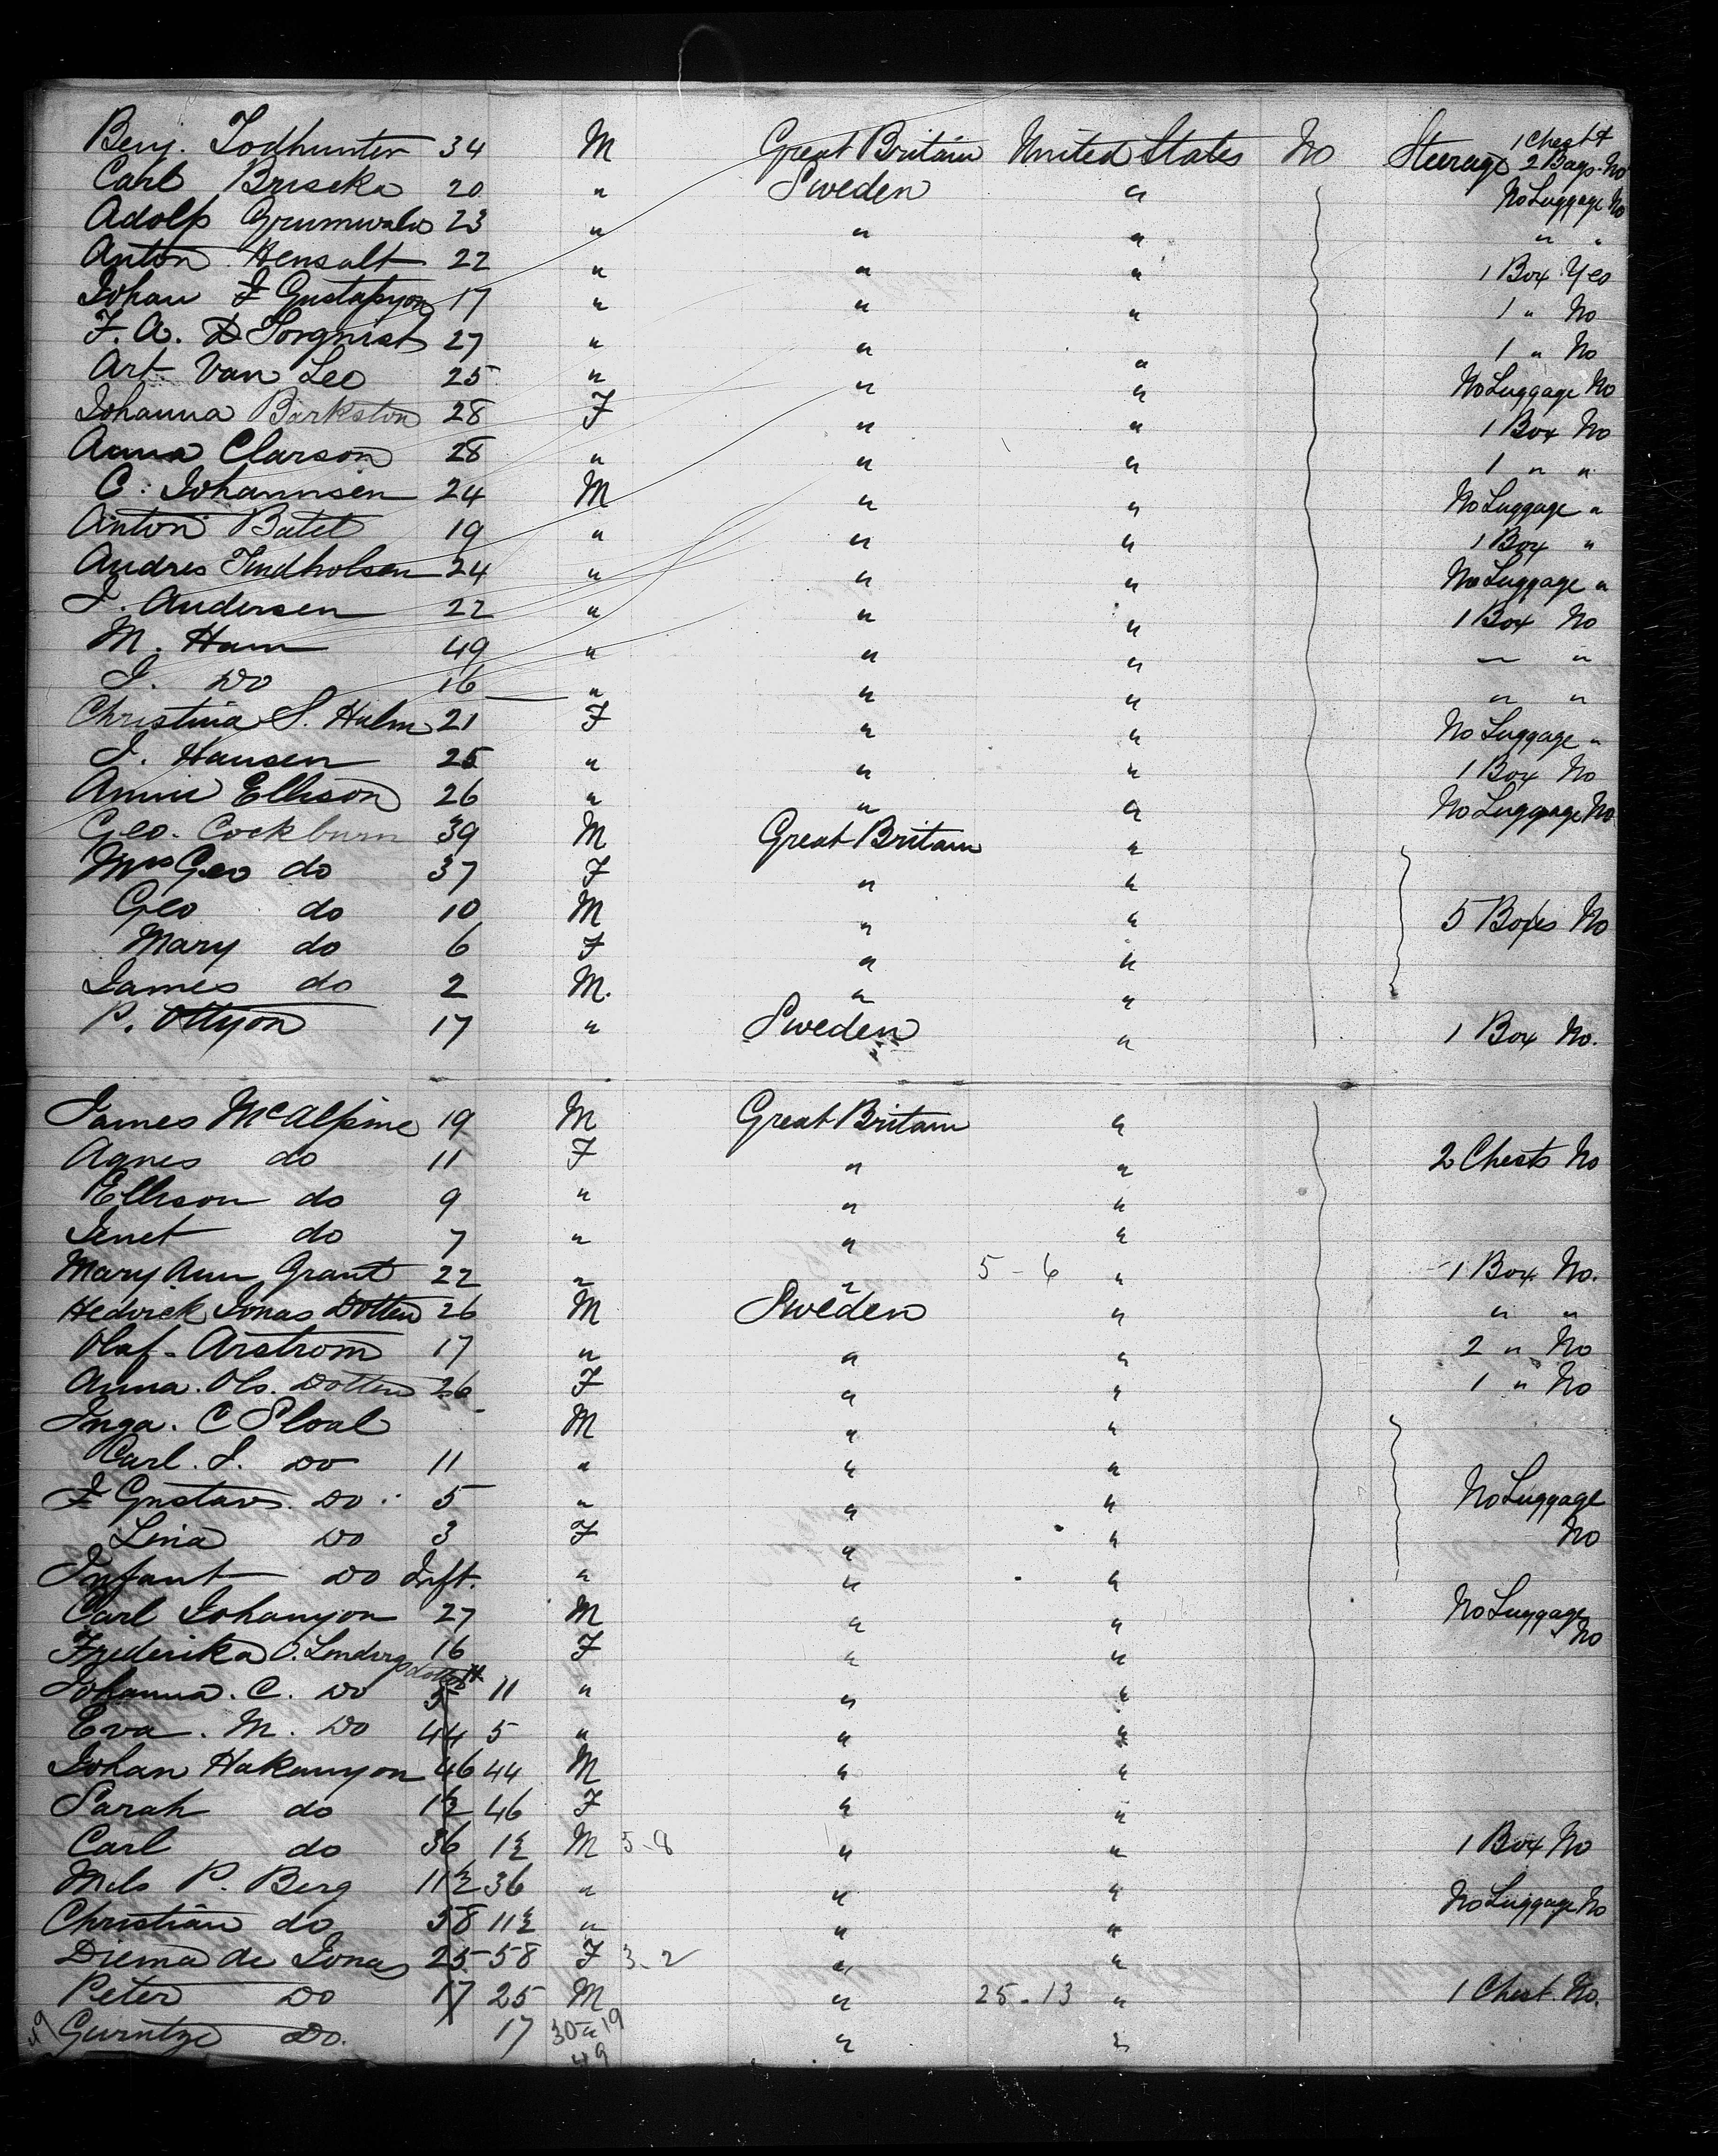 Benj. Todhunter 34 M Great Britain United States No Steerage 1 Chest + 2 Bags No
Carl Briseka 20 " Sweden " No Luggage No
Adolp Grumwald 23 " " " " "
Anton Hensalt 22 " " " 1 Box Yes
Johan F Gustafsson 17 " " " 1 " No
F. A. Torgnist 27 " " " 1 " No
Art Van Leo 25 " " " No Luggage No
Johanna Barkston 28 F " " 1 Box No
Anna Clarson 28 " " " 1 " "
C. Johannsen 24 M " " No Luggage "
Anton Batet 19 " " " 1 Box "
Andres Lindholsen 24 " " " No Luggage "
J. Andersen 22 " " " 1 Box No
M. Ham 49 " " " " "
J. Do 16 " " " " "
Christina S. Halm 21 F " " No Luggage "
J. Hansen 25 " " " 1 Box No
Annie Ellison 26 " " " No Luggage No
Geo. Cockburn 39 M Great Britain "
Mrs Geo do 37 F " "
Geo do 10 M " " 5 Boxes No
Mary do 6 F " "
James do 2 M. " "
P. Ottson 17 " Sweden " 1 Box No.
James McAlpine 19 M Great Britain "
Agnes do 11 F " " 2 Chests No
Ellison do 9 " " "
Jenet do 7 " " "
Mary Ann Grant 22 " " 5-6 " 1 Box No.
Hedvick Jonas Dotten 26 M Sweden " " "
Olaf Arstrom 17 " " " 2 " No
Anna Ols. Dotten 26 F " " 1 " No
Inga. C Sloal M " "
Carl. J. Do 11 " " "
F Gustav Do 5 " " " No Luggage
Lina Do 3 F " " No
Infant Do Inft. " " "
Carl Johansson 27 M " " No Luggage No
Frederika O. Lenders dotter 16 F " "
Johanna. C. Do 5 11 " " "
Eva. M. Do 44 5 " " "
Johan Hakansson 46 44 M " "
Sarah do 1½ 46 F " "
Carl do 36 1½ M 5-8 " " 1 Box No
Mils P. Berg 11½ 36 " " " No Luggage No
Christian do 58 11½ " " "
Diema de Jonas 25 58 F 3-2 " "
Peter Do 17 25 M " 25-13 " 1 Chest No.
49 Gurntze Do. 17 30 " 19 " "
49